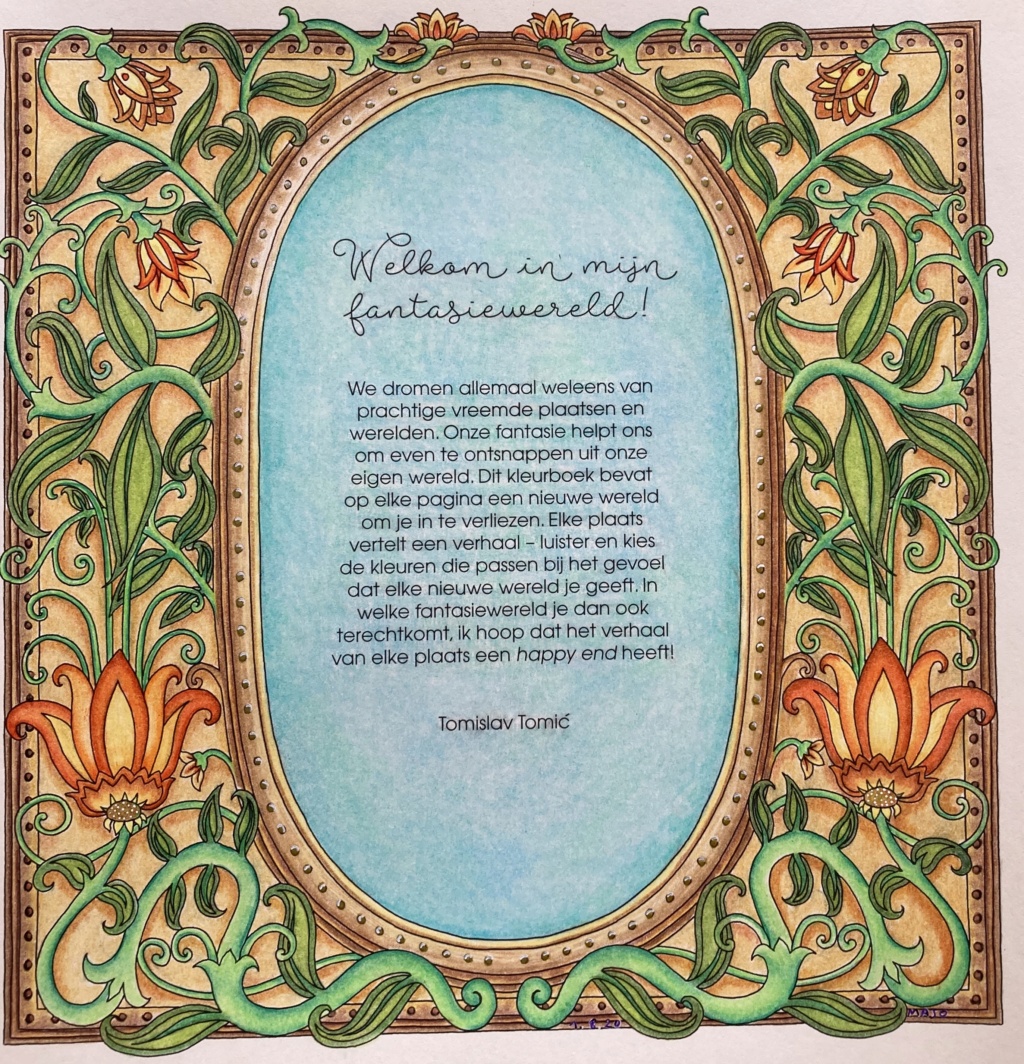 Welkom in mijn
fantasiewereld!
We dromen allemaal weleens van
prachtige vreemde plaatsen en
werelden. Onze fantasie helpt ons
om even te ontsnappen uit onze
eigen wereld. Dit kleurboek bevat
op elke pagina een nieuwe wereld
om je in te verliezen. Elke plaats
vertelt een verhaal – luister en kies
de kleuren die passen bij het gevoel
dat elke nieuwe wereld je geeft. In
welke fantasiewereld je dan ook
terechtkomt, ik hoop dat het verhaal
van elke plaats een happy end heeft!
Tomislav Tomić
MAJO